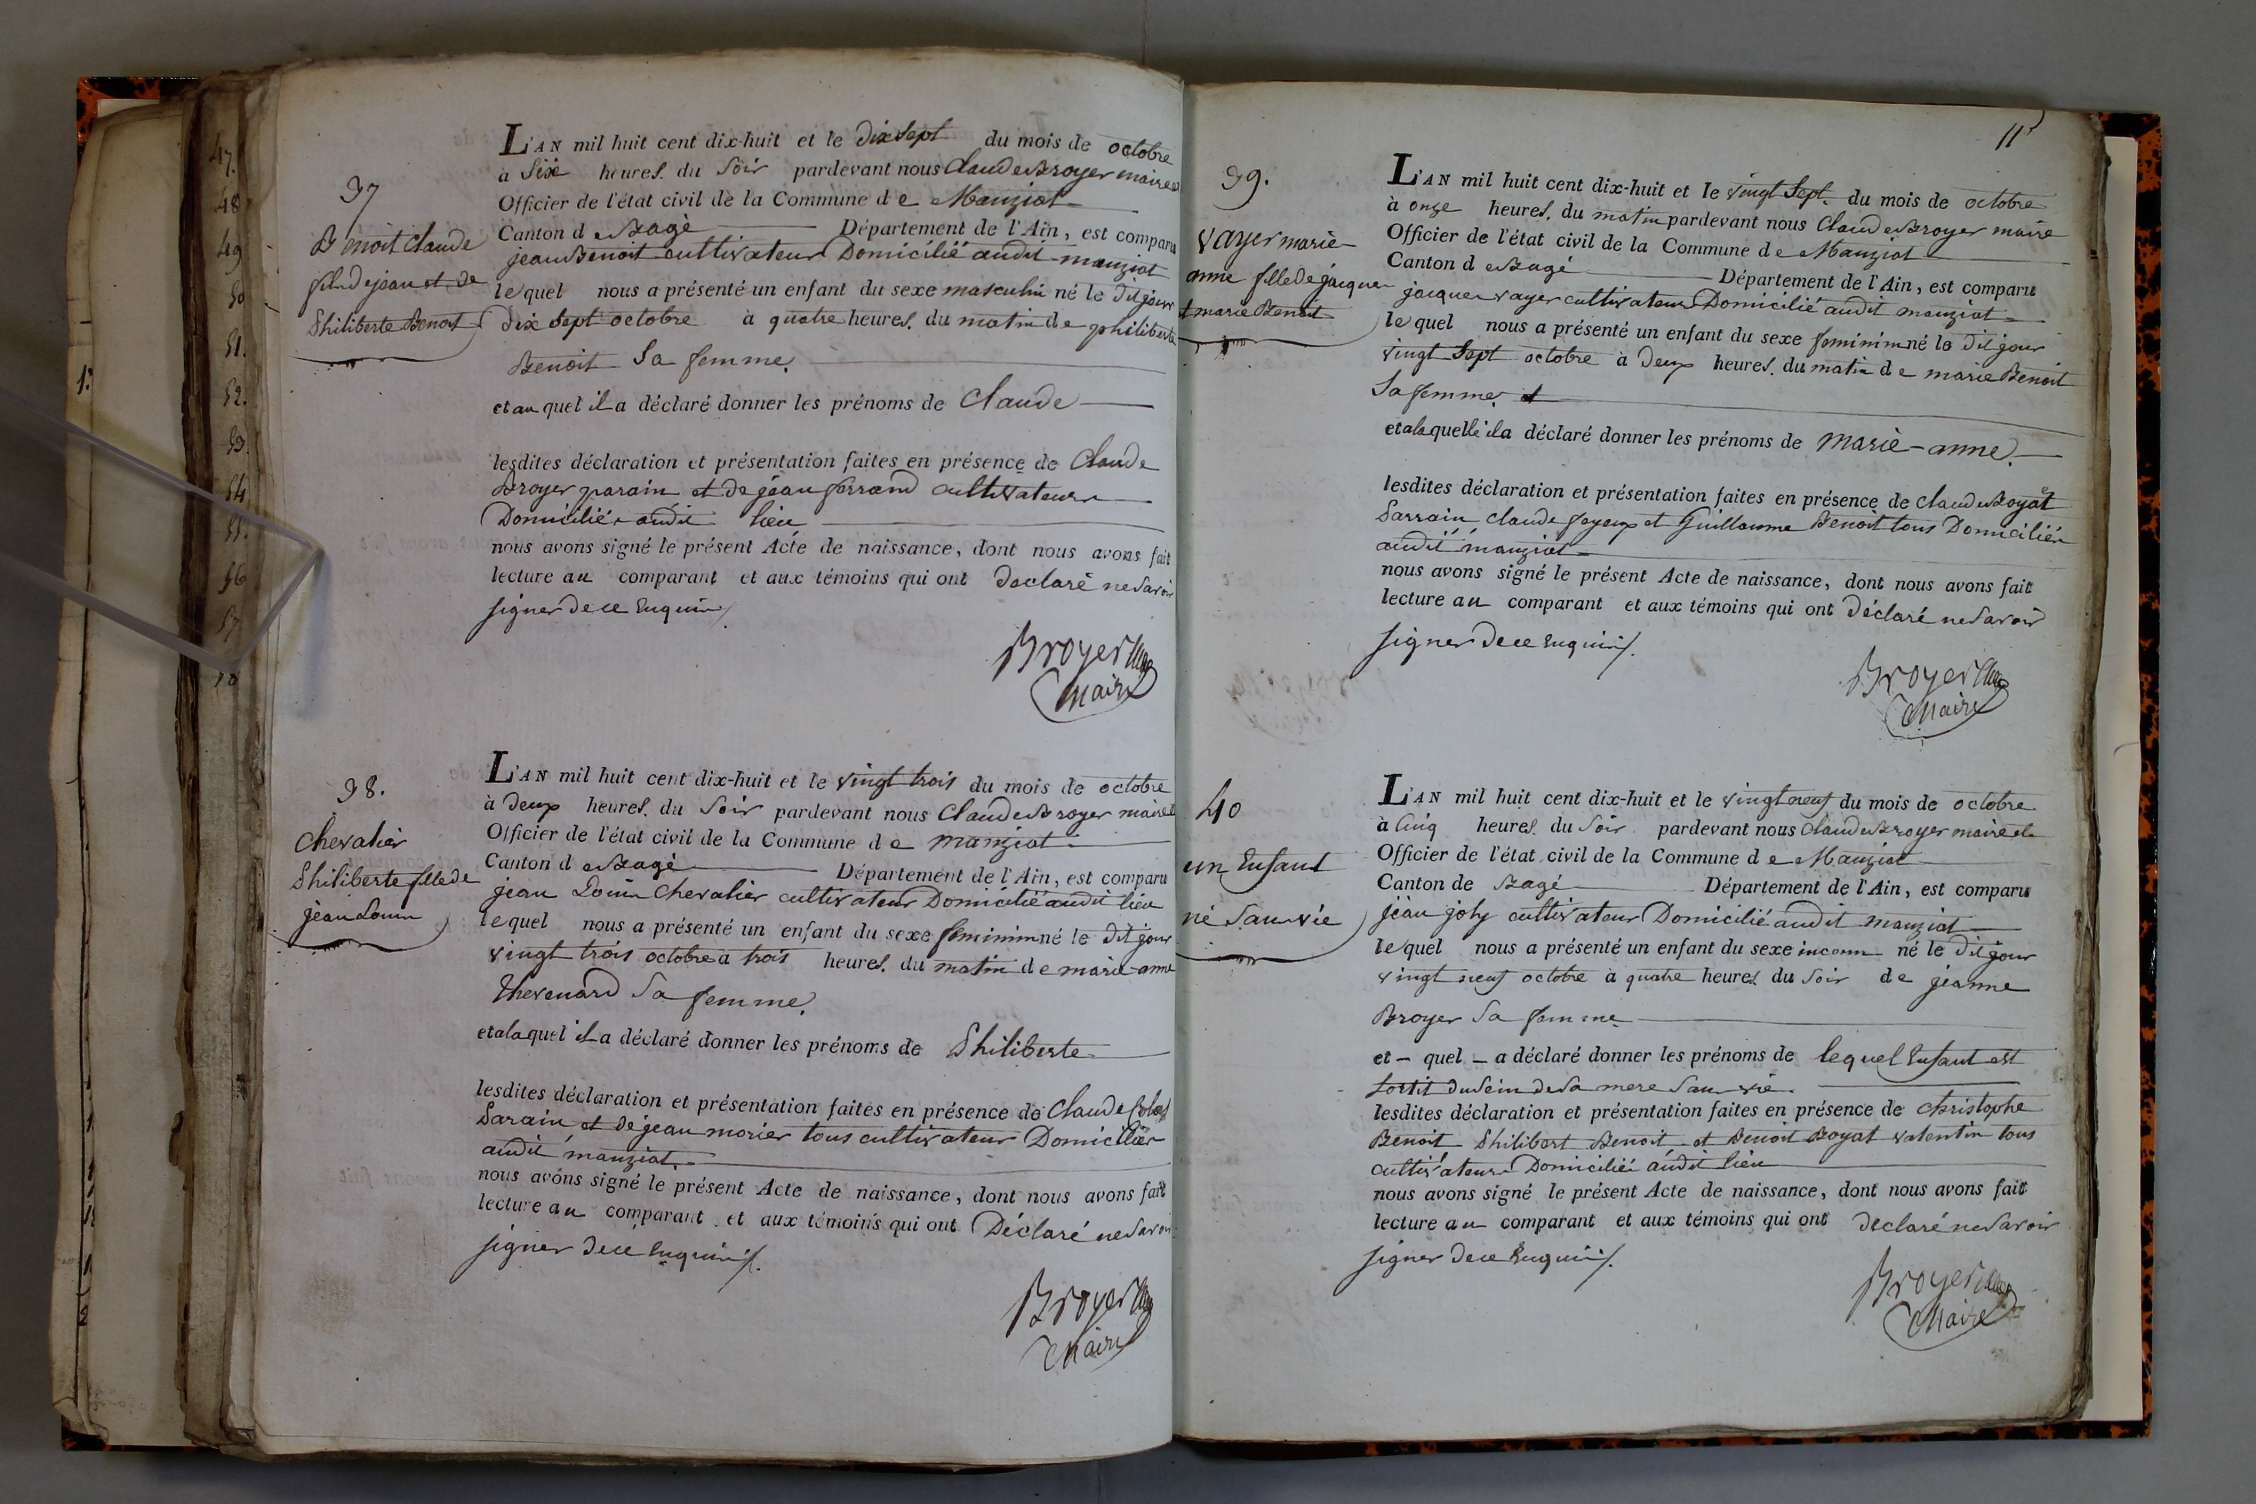 47.
48
49
50
51.
52.
53.
54
55.
56
57
37
Benoit Claude
fils de jean et de
Philiberte Benoit
L'AN mil huit cent dix-huit et le dix sept du mois de octobre
à Six heures du Soir pardevant nous Claude Broyer maire et
Officier de l'état civil de la Commune de Manziat
Canton de Bagé Département de l'Ain, est comparu
jean Benoit cultivateur Domicilié audit manziat
lequel nous a présenté un enfant du sexe masculin né le dit jour
dix Sept octobre à quatre heures du matin de philiberte
Benoit Sa femme
et au quel il a déclaré donner les prénoms de Claude
lesdites déclaration et présentation faites en présence de Claude
Broyer parain et de jean ferrand cultivateurs
Domiciliés audit lieu
nous avons signé le présent Acte de naissance, dont nous avons fait
lecture au comparant et aux témoins qui ont declaré ne Savoir
signer de ce Enquis
Broyer
Maire
38.
Chevalier
Philiberte fille de
jean Louis
L'AN mil huit cent dix-huit et le vingt trois du mois de octobre
à deux heures du Soir pardevant nous Claude Broyer maire et
Officier de l'état civil de la Commune de manziat
Canton de Bagé Département de l'Ain, est comparu
jean Louis Chevalier cultivateur Domicilié audit lieu
lequel nous a présenté un enfant du sexe feminim né le dit jour
vingt trois octobre à trois heures du matin de marie anne
thevenard Sa femme
et a la quel il a déclaré donner les prénoms de Philiberte
lesdites déclaration et présentation faites en présence de Claude
Parain et de jean morier tous cultivateurs Domiciliés
audit manziat.
nous avons signé le présent Acte de naissance, dont nous avons fait
lecture au comparant et aux témoins qui ont Déclaré ne Savoir
signer de ce Enquis
Broyer
Maire
11
39.
Vayer marie
anne fille de jacques
et marie Benoit
L'AN mil huit cent dix-huit et le vingt Sept du mois de octobre
à onze heures du matin pardevant nous Claude Broyer maire
Officier de l'état civil de la Commune de Manziat
Canton de Bagé Département de l'Ain, est comparu
jacques vayer cultivateur Domicilié audit manziat
lequel nous a présenté un enfant du sexe feminim né le dit jour
vingt Sept octobre à deux heures du matin de marie Benoit
Sa femme
et a la quelle il a déclaré donner les prénoms de marie-anne
lesdites déclaration et présentation faites en présence de Claude Boyat
Parrain Claude fayeux et Guillaume Benoit tous Domiciliés
audit manziat
nous avons signé le présent Acte de naissance, dont nous avons fait
lecture au comparant et aux témoins qui ont Déclaré ne Savoir
signer de ce Enquis
Broyer
Maire
40
un Enfant
né Sans vie
L'AN mil huit cent dix-huit et le vingt neuf du mois de octobre
à Cinq heures du Soir pardevant nous Claude Broyer maire et
Officier de l'état civil de la Commune de Manziat
Canton de Bagé Département de l'Ain, est comparu
jean joly cultivateur Domicilié audit manziat
lequel nous a présenté un enfant du sexe inconnu né le dit jour
vingt neuf octobre à quatre heures du Soir de jeanne
Broyer Sa femme
et - quel - a déclaré donner les prénoms de lequel Enfant est
Sortit du Sein de Sa mere Sans vie
lesdites déclaration et présentation faites en présence de Christophe
Benoit Philibert Benoit et Benoit Boyat valentin tous
cultivateurs Domiciliés audit lieu
nous avons signé le présent Acte de naissance, dont nous avons fait
lecture au comparant et aux témoins qui ont declaré ne Savoir
signer de ce Enquis
Broyer
Maire